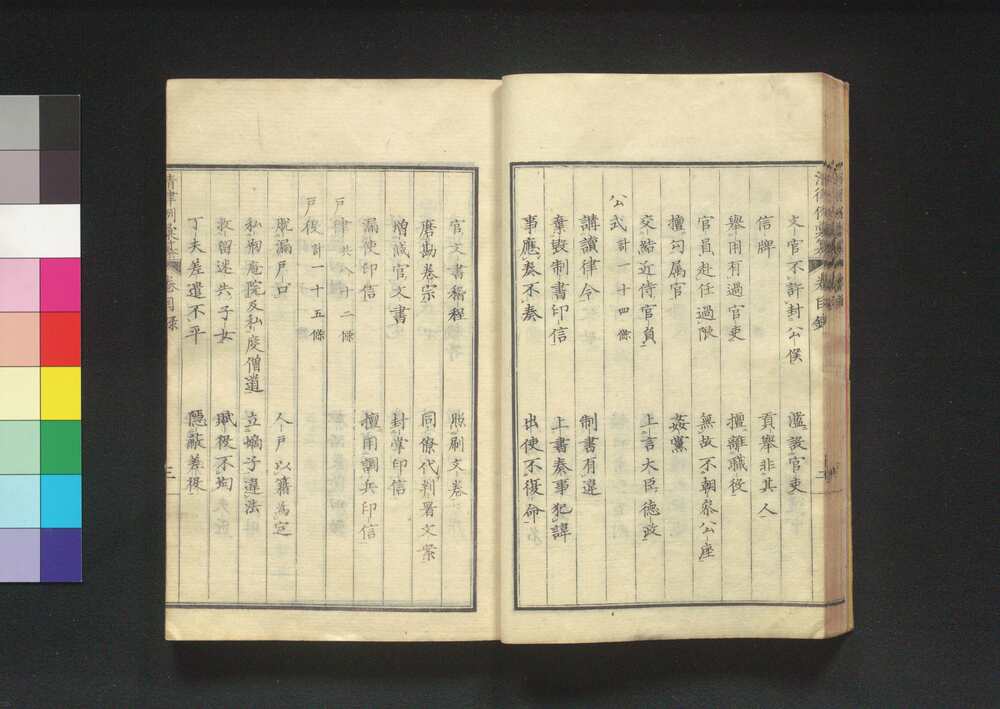 清律例彙纂 卷目錄 二
文官不許封公侯 濫設官吏
信牌 貢舉非其人
舉用有過官吏 擅離職役
官員赴任過限 無故不朝參公座
擅勾属官 姦黨
交結近侍官員 上言大臣德政
公式 計一十四條
講讀律令 制書有違
棄毀制書印信 上書奏事犯諱
事應奏不奏 出使不復命
官文書稽程 照刷文卷
磨勘卷宗 同僚代判署文案
增減官文書 封掌印信
漏使印信 擅用調兵印信
戶律 共八十二條
戶役 計一十五條
脫漏戶口 人戶以籍為定
私刱庵院及私度僧道 立嫡子違法
收留迷失子女 賦役不均
丁夫差遣不平 隱蔽差役
清律例彙纂 卷目錄 三